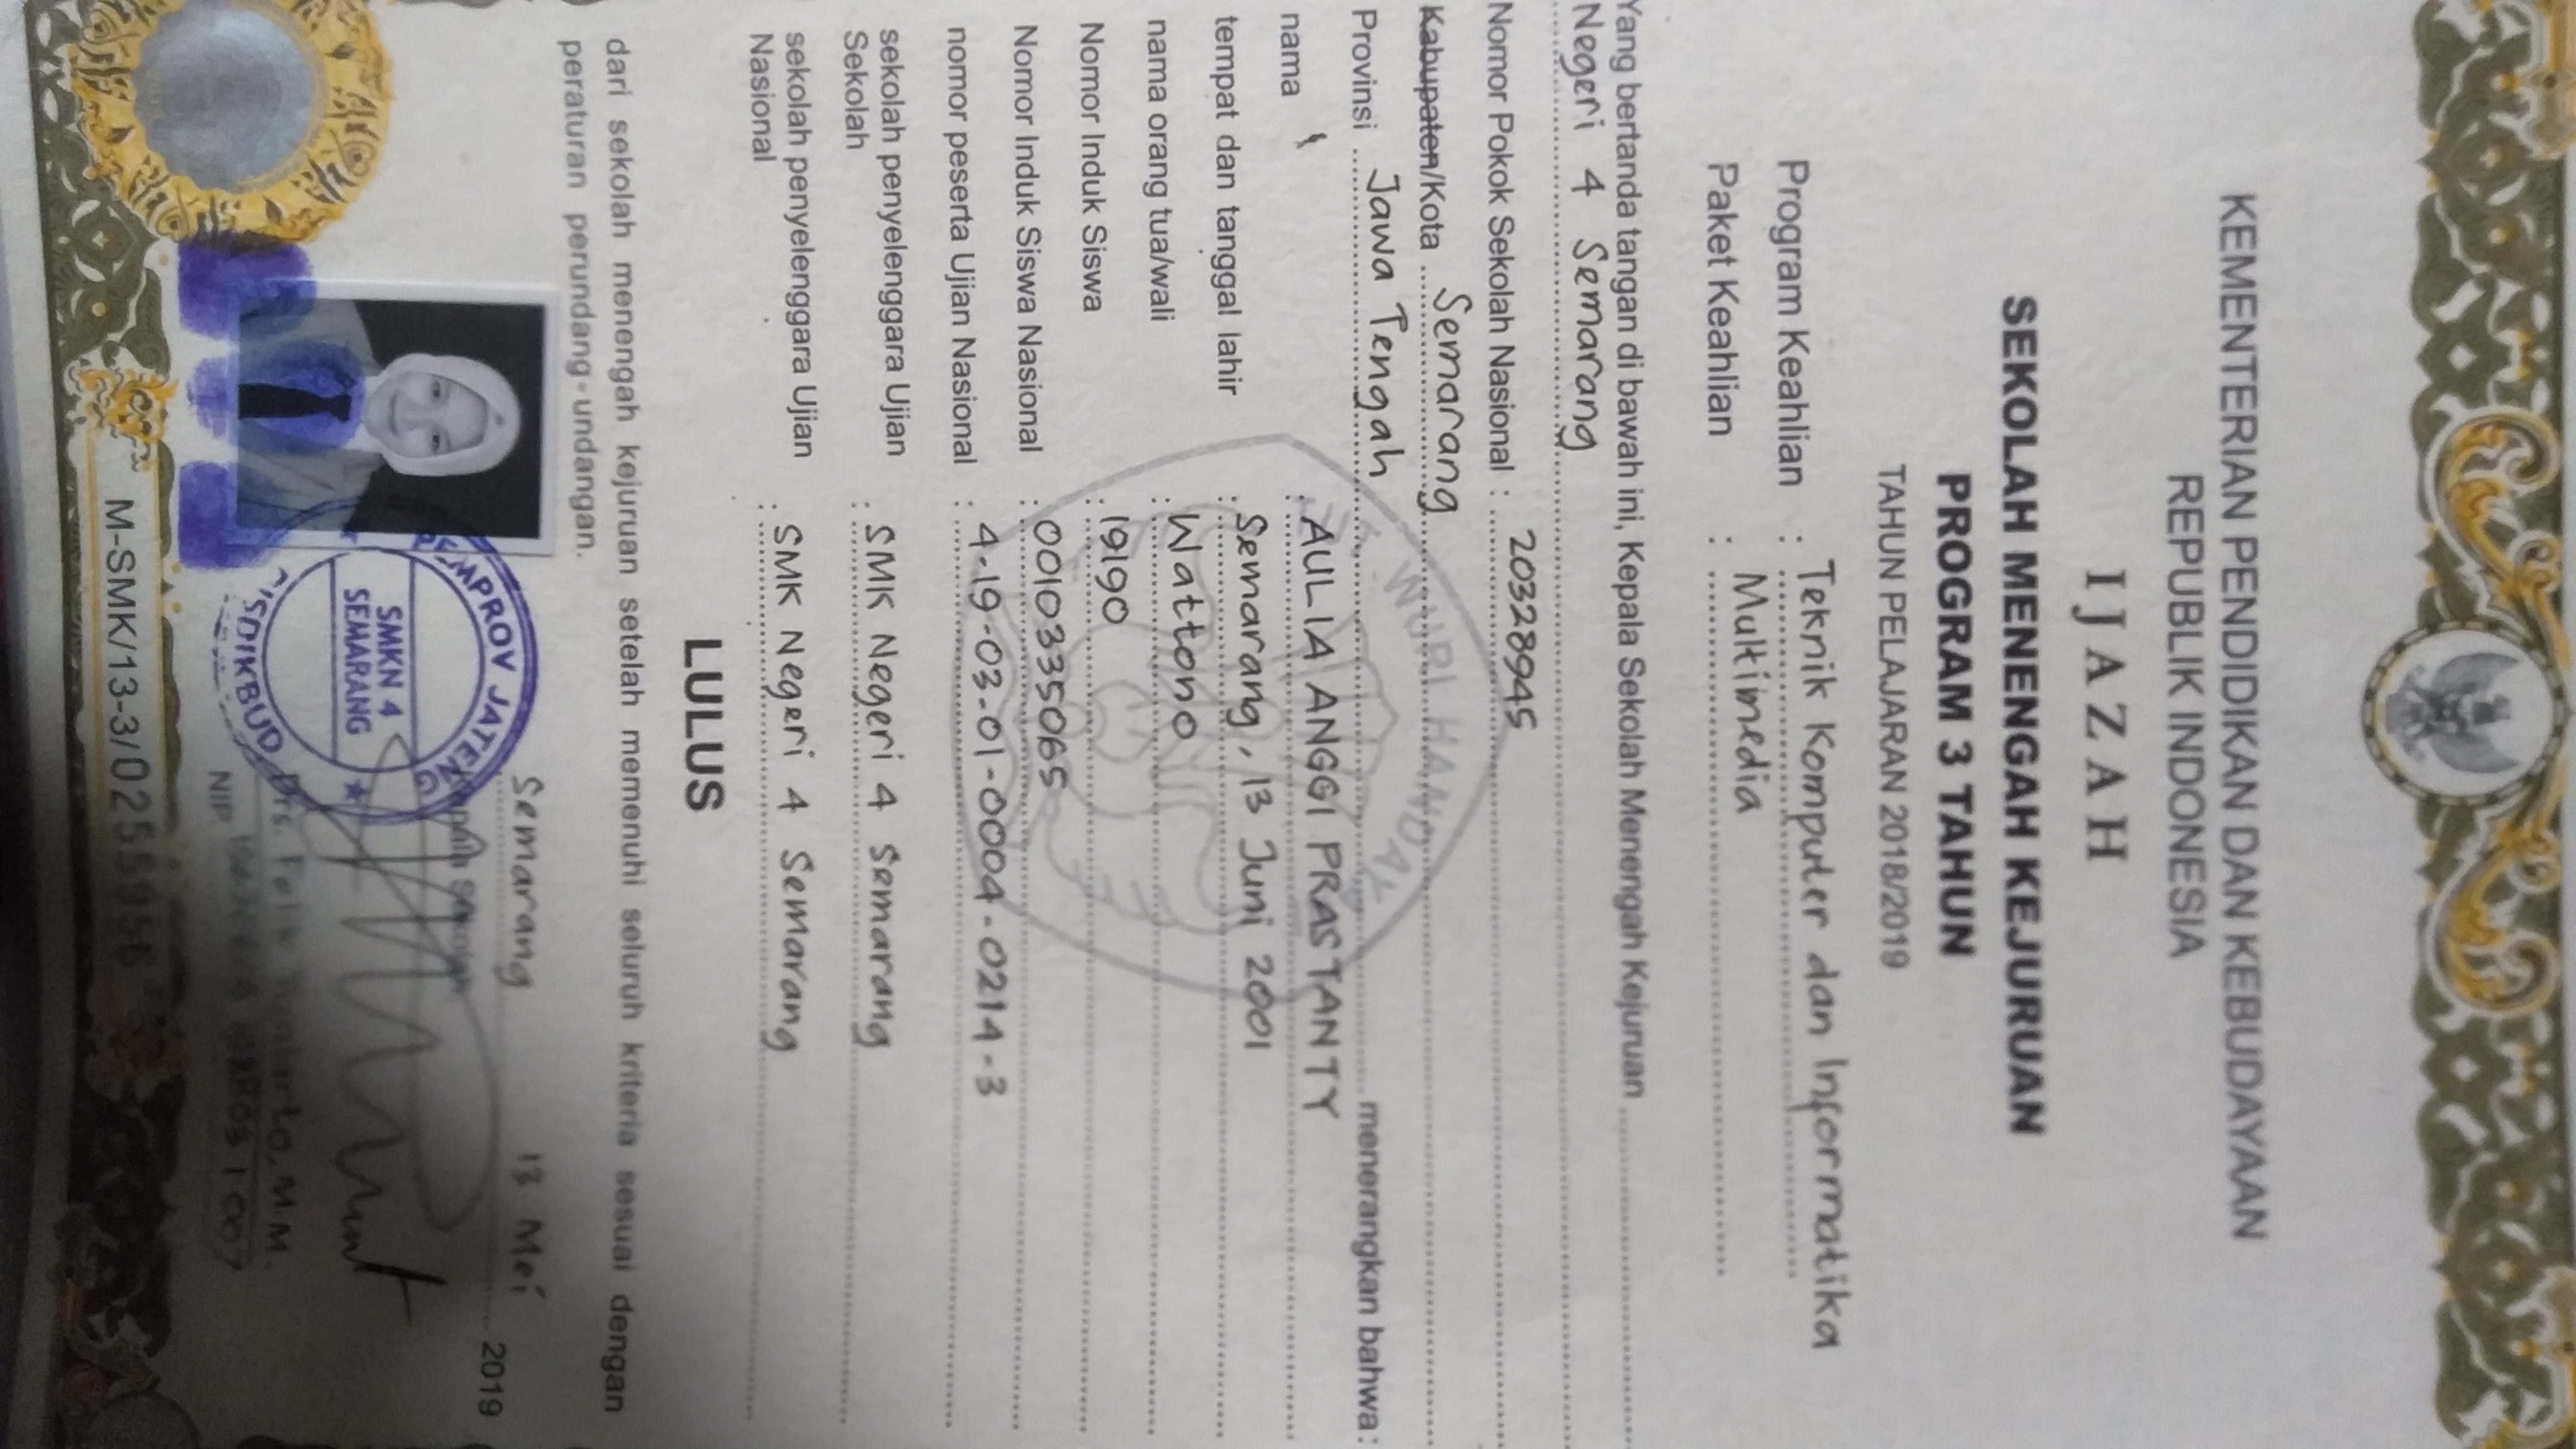 KEMENTERIAN PENDIDIKAN DAN KEBUDAYAAN
REPUBLIK INDONESIA
IJAZAH
SEKOLAH MENENGAH KEJURUAN
PROGRAM 3 TAHUN
TAHUN PELAJARAN 2018/2019
Program Keahlian : Teknik Komputer dan Informatika
Paket Keahlian : Multimedia
Yang bertanda tangan di bawah ini, Kepala Sekolah Menengah Kejuruan
Negeri 4 Semarang
Nomor Pokok Sekolah Nasional : 20328945
Kabupaten/Kota Semarang
Provinsi Jawa Tengah menerangkan bahwa:
nama : AULIA ANGGI PRASTANTY
tempat dan tanggal lahir : Semarang, 13 Juni 2001
nama orang tua/wali : Wattono
Nomor Induk Siswa : 19190
Nomor Induk Siswa Nasional : 0010335065
nomor peserta Ujian Nasional : 4-19-03-01-0004-0214-3
sekolah penyelenggara Ujian : SMK Negeri 4 Semarang
Sekolah
sekolah penyelenggara Ujian : SMK Negeri 4 Semarang
Nasional
LULUS
dari sekolah menengah kejuruan setelah memenuhi seluruh kriteria sesuai dengan
peraturan perundang-undangan.
Semarang 13 Mei 2019
Kepala Sekolah
PEMPROV JATENG
SMKN 4
SEMARANG
DISDIKBUD
Drs. M.M.
NIP.
M-SMK/13-3/
WURI HANDAY